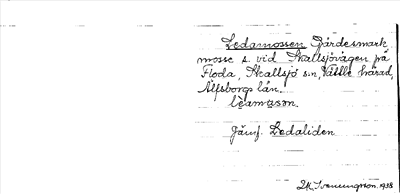 Ledamossen Gärdesmark
mosse s. vid Skallsjövägen på
Floda, Skallsjö sn, Vättle härad,
Älfsborgs län.
lèamɷsɷn.
Jämf. Ledaliden
1938